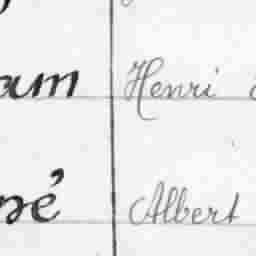 am Henri
né Albert